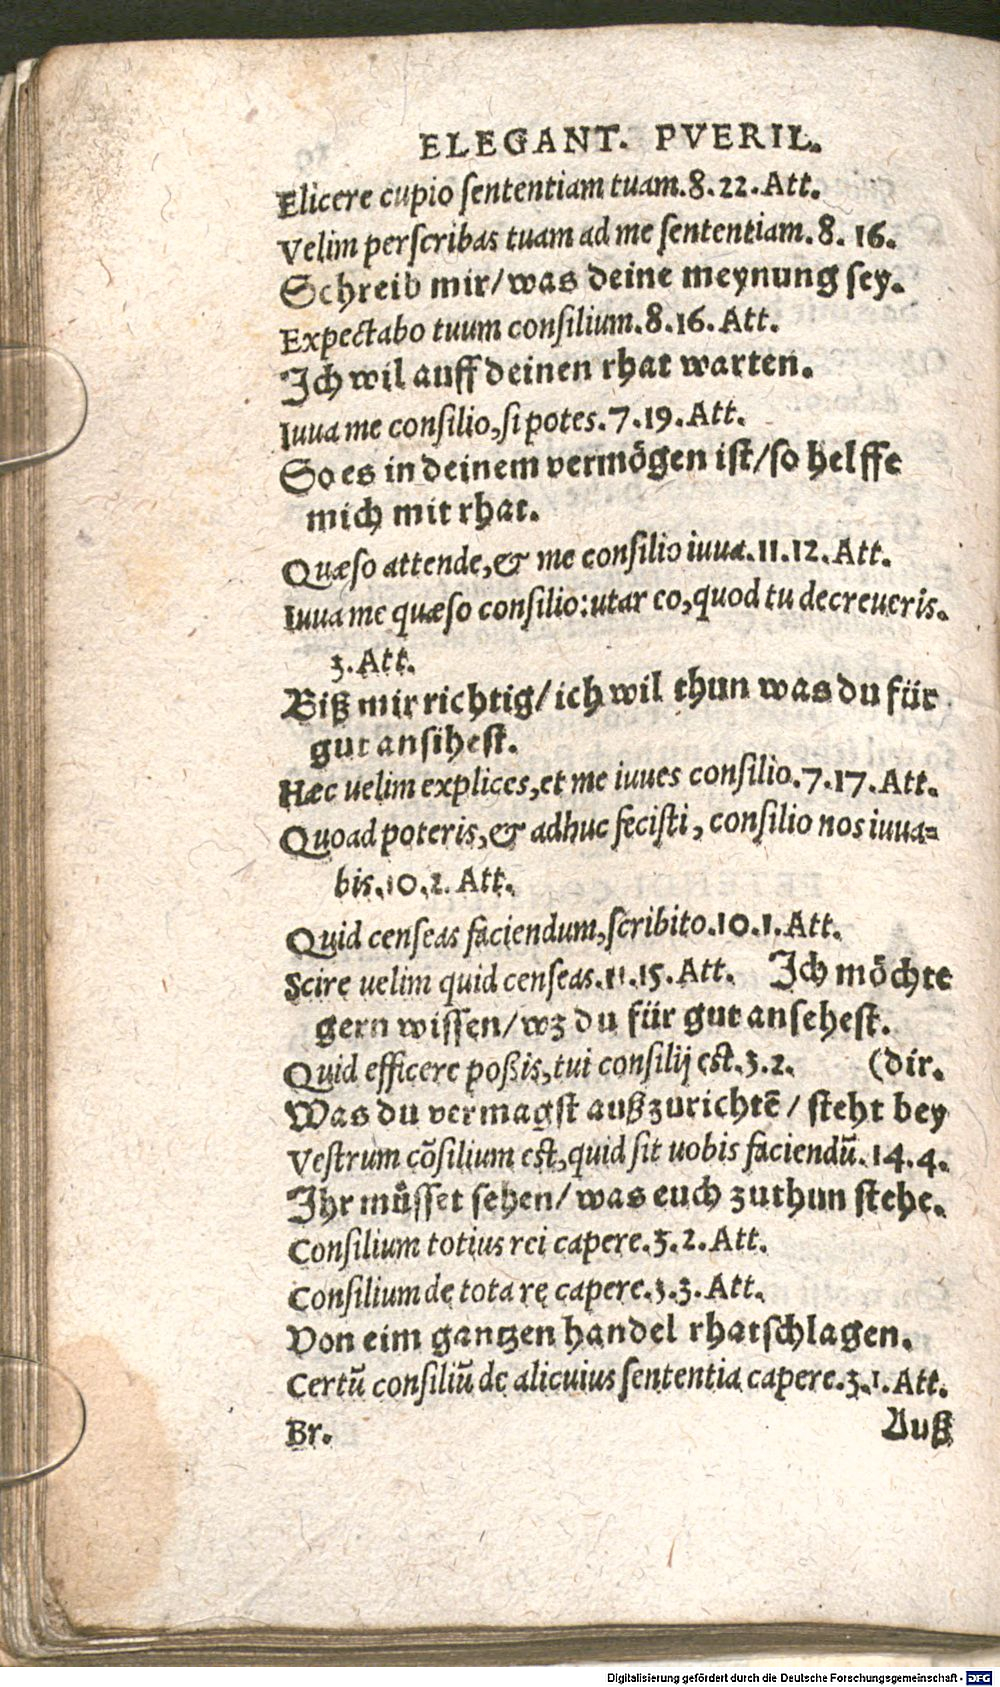 ELEGANT. PVERIL.
Elicere cupio ſententiam tuam.8.22.Att.
Velim perſcribas tuam ad me ſententiam.8.16.
Schreib mir/was deine meynung ſey.
Expectabo tuum conſilium.8.16.Att.
Ich wil auff deinen rhat warten.
Iuua me conſilio,ſi potes.7.19.Att.
So es in deinem vermögen iſt/ſo helffe
mich mit rhat.
Quæſo attende,& me conſilio iuua.11.12.Att.
Iuua me quæſo conſilio:utar eo,quod tu decreueris.
3.Att.
Biß mir richtig/ich wil thun was du für
gut anſiheſt.
Hæc uelim explices,et me iuues conſilio.7.17.Att.
Quoad poteris,& adhuc feciſti, conſilio nos iuua=
bis.10.2.Att.
Quid cenſeas faciendum,ſcribito.10.1.Att.
Scire uelim quid cenſeas.11.15.Att. Ich möchte
gern wiſſen/wz du für gut anſeheſt.
Quid efficere poßis,tui conſilij eſt.3.2. (dir.
Was du vermagſt außzurichtē/ ſteht bey
Veſtrum cōſilium eſt,quid ſit uobis faciendū.14.4.
Ihr müſſet ſehen/was euch zuthun ſtehe.
Conſilium totius rei capere.3.2.Att.
Conſilium de tota re capere.3.3.Att.
Von eim gantzen handel rhatſchlagen.
Certū conſiliū de alicuius ſententia capere.3.1.Att.
Br. Auß
Digitalisierung gefördert durch die Deutsche Forschungsgemeinschaft - DFG